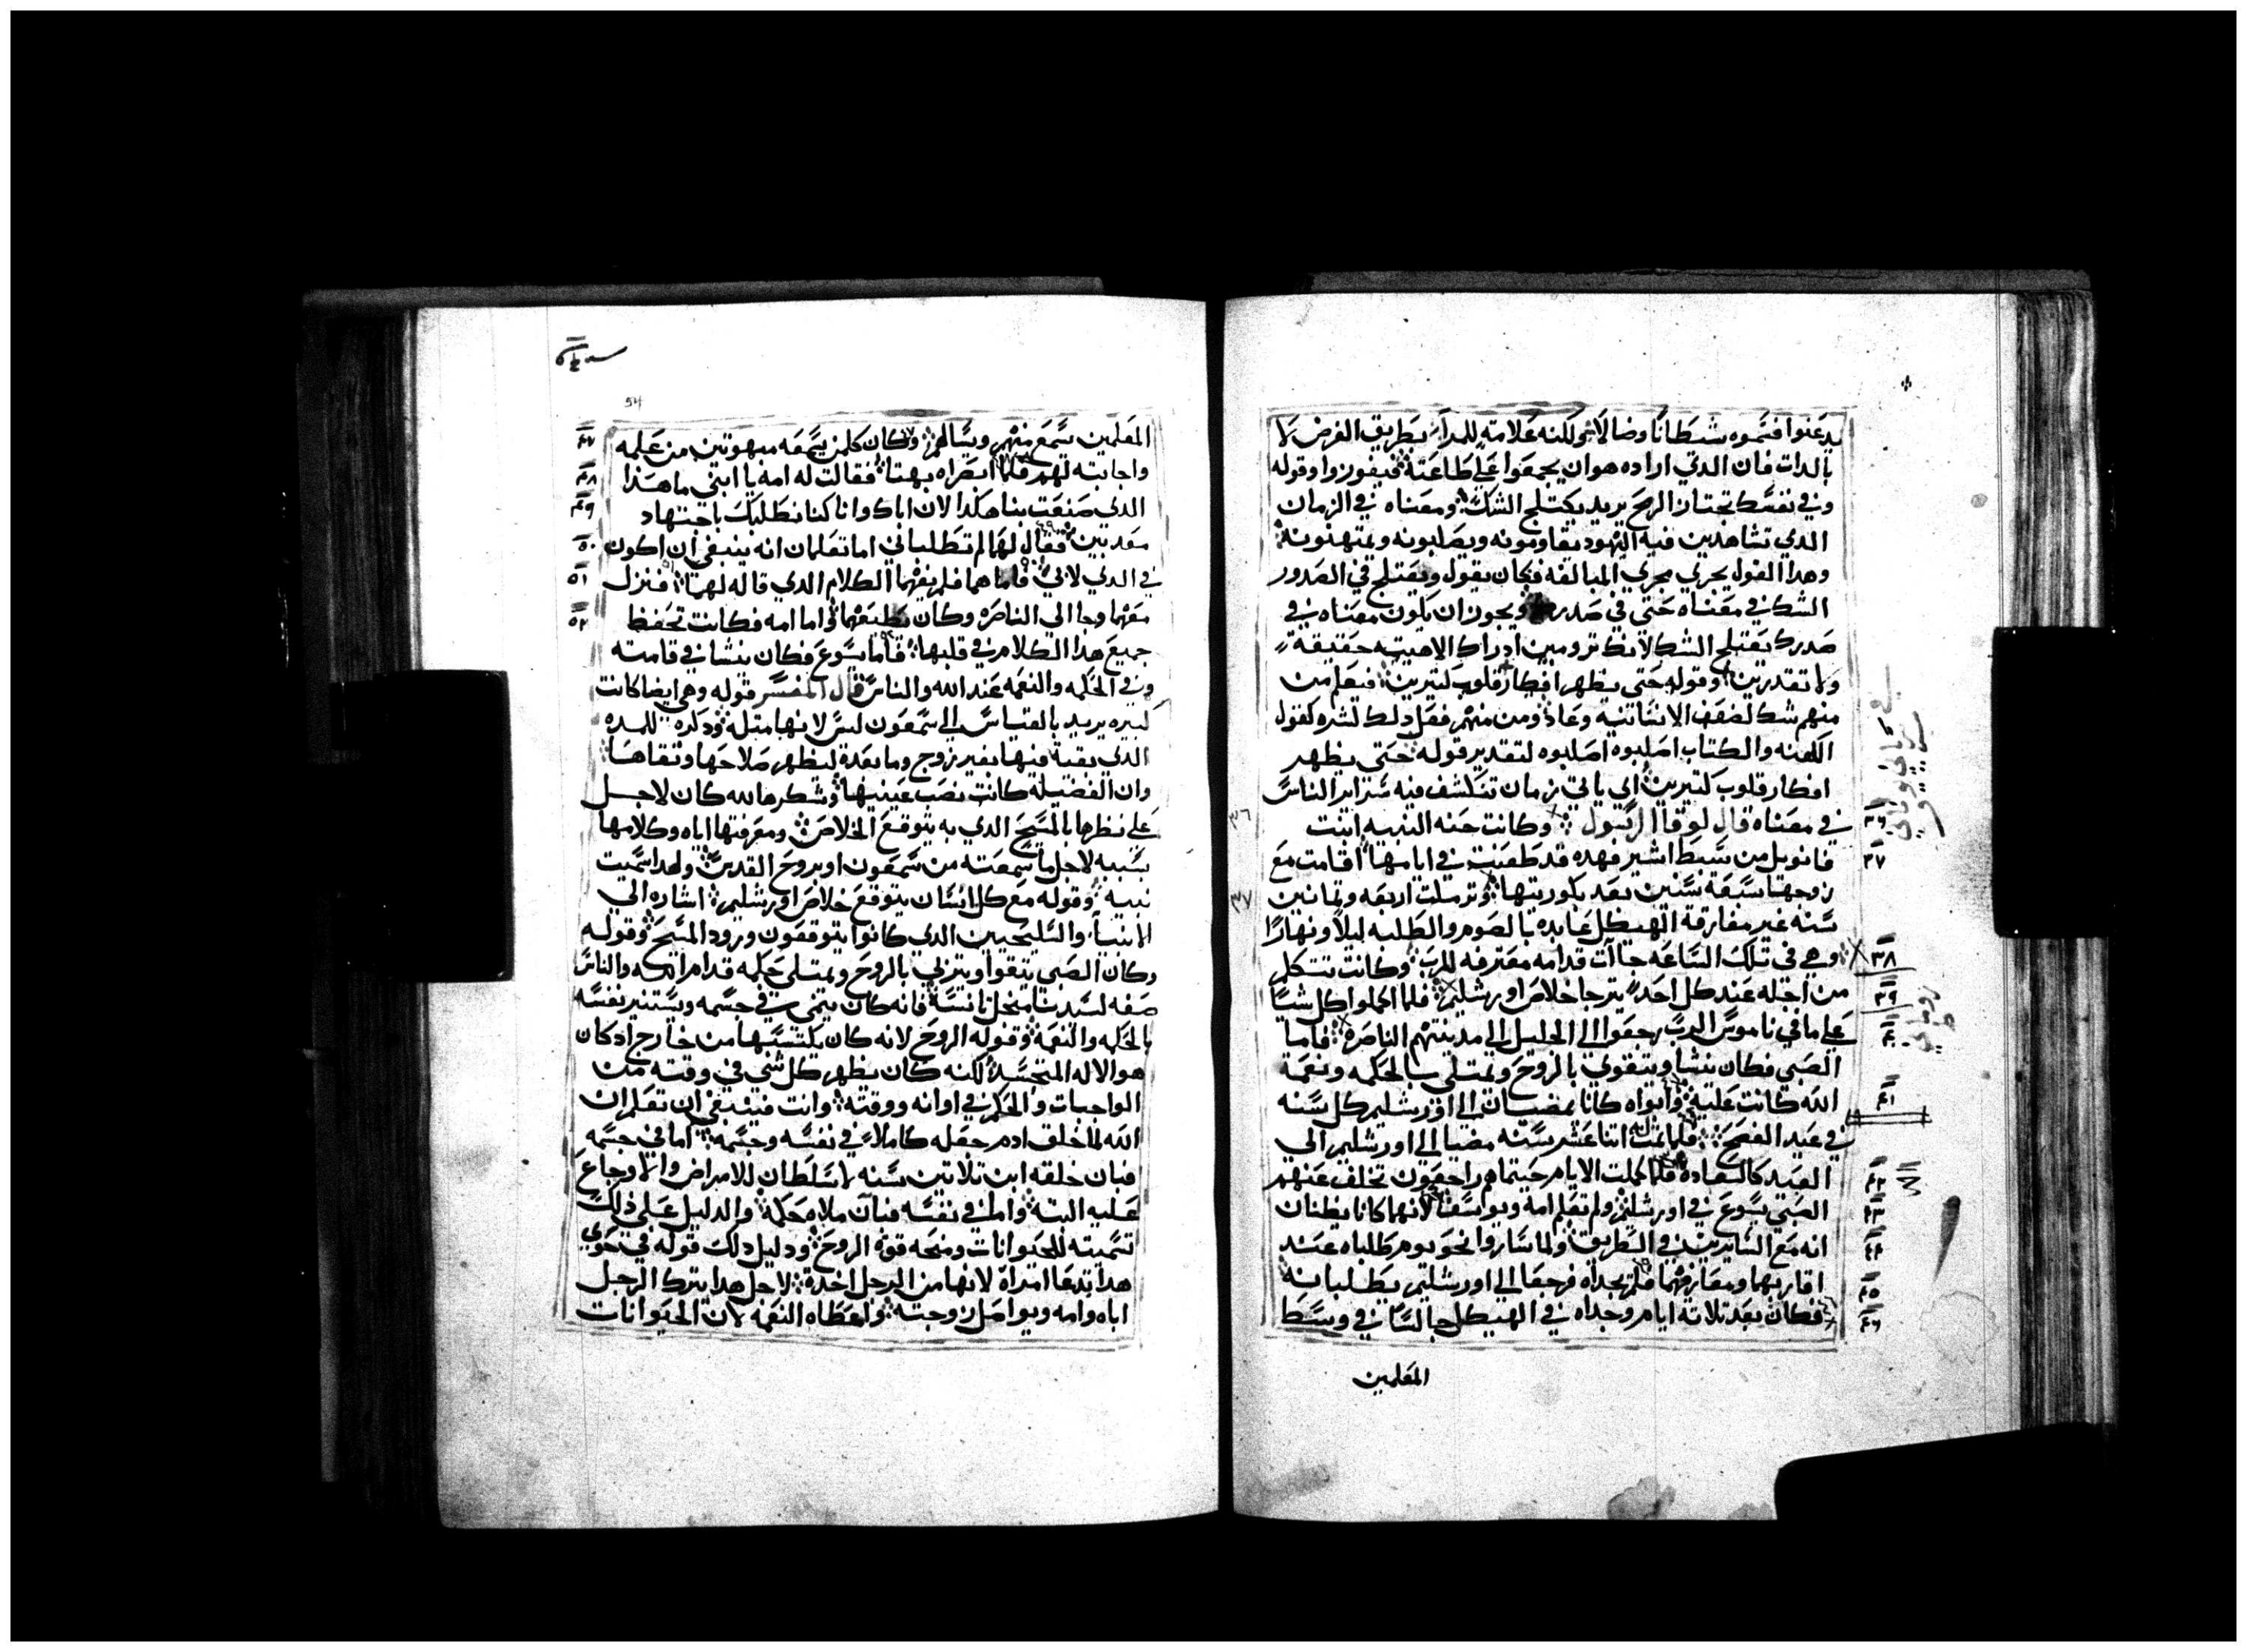 يدعنوا فتموه شيطانا وضالا شي لكنه علامته للمدا بطريق الغرض لا
بالدات فان الدي اراده هو ان يجمعوا على طاعته فيفوزوا وقوله
وفي نفسك تجتاز الرمح يريد يختلج الشك ومعناه في الزمان
الدي تشاهدين فيه اليهود يقاومونه ويصلبونه ويمتهنونه
وهدا القول يجري مجري المبالغه فكان يقول ويعتلج في الصدور
الشك في معناه حتى في صدرك ويجوز ان يكون معناه في
صدرك يعتلج الشك لانك ترومين ادراك الاهيته حقيقة
ولا تقدرين وقوله حتى يظهر افكار قلوب كتيرين فيعلم من
منهم شك لضعف الانشانيه وعاد ومن منهم فعل دلك لشره كقول
الكهنه والكتاب اصلبوه اصلبوه لتقدير قوله حتى يظهر
افكار قلوب كتيرين اي ياتي زمان تنكشف فيه سراير الناس
في معناه قال لوقا الرسول وكانت حنه النبيه ابنت
فانويل من سبط اشير فهده قد طعنت في ايامها اقامت مع
زوجها سبعة سنين بعد بكوريتها وترملت اربعه وتمانين
سنه غير مفارقة الهيكل عابده بالصوم والطلبه ليلا ونهارا
وهي في تلك الساعه جاات قدامه معترفه للرب وكانت تتكلم
من اجله عند كل احد يترجا خلاص اورشليم فلما اكملوا كل شيا
على ما في ناموس الرب رجعوا الى الجليل الى مدينتهم الناصره فاما
الصبي فكان ينشا ويتقوي بالروح ويمتلي بالحكمه ونعمة
الله كانت عليه وابواه كانا يمضيان الى اورشليم كل سنه
في عيد الفصح فلما تمت له اتنا عشر سنه مضيا الى اورشليم الى
العيد كالعاده فلما كملت الايام حيتما هم راجعون تخلف عنهم
الصبي يسوع في اورشليم ولم تعلم امه ويوسف لانهما كانا يظنان
انه مع السايرين في الطريق ولما ساروا نحو يوم طلباه عند
اقاربهما ومعارفهما فلم يجداه فرجعا الى اورشليم يطلبانه
فكان بعد تلاتة ايام وجداه في الهيكل جالسا في وسط
المعلمين
٣٦
٣٧
٣٨
٣٩
٤٠
٤١
٤٢
٤٣
٤٤
٤٥
٤٦
54
المعلمين يسمع منهم ويسالهم وكان كلمن يسمعه مبهوتين من علمه
واجابته لهم فلما ابصراه بهتا فقالت له امه يا ابني ما هدا
الدي صنعت بنا هكدا لان اباك وانا كنا نطلبك باجتهاد
معدبين فقال لهما لم تطلباني اما تعلمان انه ينبغي ان اكون
في الدي لابي فاما هما فلم يفهما الكلام الدي قاله لهما فنزل
معهما وجا الى الناصره وكان يطيعهما واما امه فكانت تحفظ
جميع هدا الكلام في قلبها فاما يسوع فكان ينشا في قامته
وفي الحكمه والنعمه عند الله والناس قال المفسر قوله وهي ايضا كانت
كبيره يريد بالقياس الى سمعون ليس لانها متله ودكره للمده
الدي بقية فيها بغير زوج وما بعده ليظهر صلاحها وتقاها
وان الفضيله كانت نصب عينيها وشكرها لله كان لاجل
على نظرها بالمسيح الدي به يتوقع الخلاص ومعرفتها اياه وكلامها
بسببه لاجل ما سمعته من سمعون او بروح القدس ولهدا سميت
نبيه وقوله مع كل انسان يتوقع خلاص اورشليم اشاره الى
الانبيا والسليحيين الدي كانوا يتوقعون ورود المسيح وقوله
وكان الصبي يتقوا ويتزلي بالروح ويمتلي حكمه قدام الله والناس
صفه لسيدنا منحل ناسه فانه كان ينمي في جسمه ويستنير نفسه
بالحكمه والنعمه وقوله الروح لانه كان يكتسبها من خارج ادكان
هو الاله المتجسد لكنه كان يظهر كل شي في وقته من
الواجبات والحكم في اوانه ووقته وانت فينبغي ان تعلم ان
الله لما خلق ادم جعله كاملا في نفسه وجسمه اما في جسمه
فبان خلقه ابن تلاتين سنه لا سلطان للامراض والاوجاع
عليه البته واما في نفسه فبان ملاه حكمه والدليل على ذلك
تسميته للحيوانات ومنحه قوة الروح ودليل دلك قوله في حوي
هدا تدعا امراة لانها من الرجل اخدة لاجل هدا يترك الرجل
اباه وامه ويواصل زوجته واعطاه النعمه لان الحيوانات
٤٧
٤٨
٤٩
٥٠
٥١
٥٢